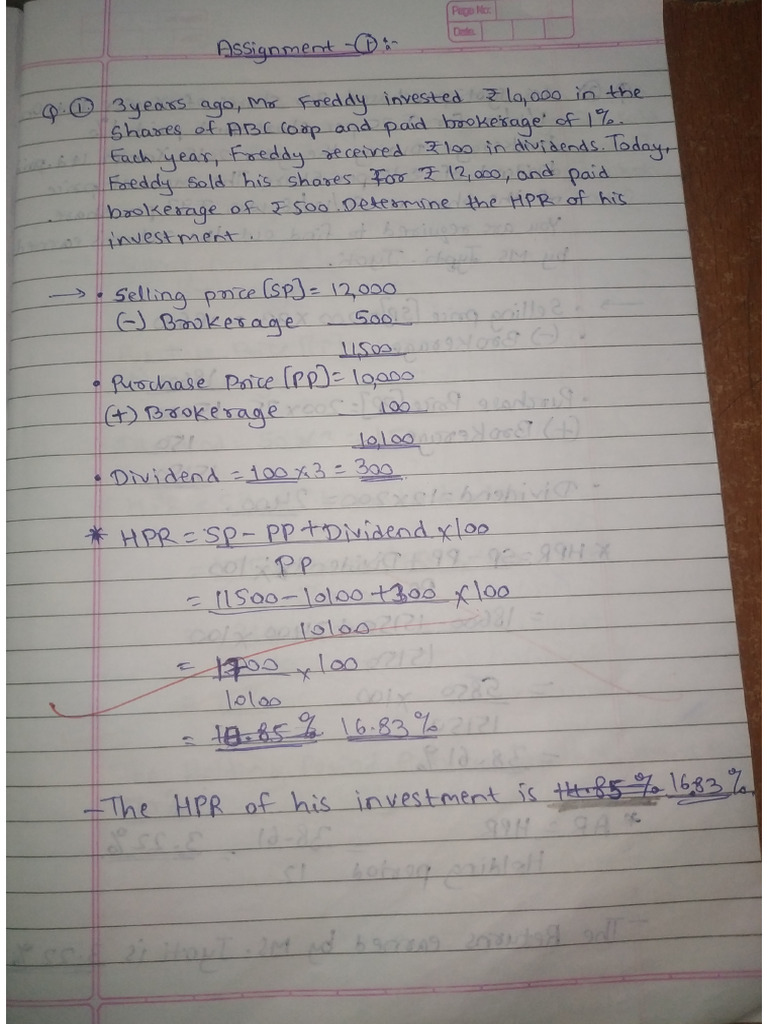 Page No:
Date:
Assignment - ① :-
Q.① 3 years ago, Mr Freddy invested ₹10,000 in the
shares of ABC Corp and paid brokerage of 1%.
Each year, Freddy received ₹100 in dividends. Today,
Freddy sold his shares, For ₹12,000, and paid
brokerage of ₹500. Determine the HPR of his
investment.
→ • Selling price [SP] = 12,000
(-) Brokerage 500
11,500
• Purchase Price [PP] = 10,000
(+) Brokerage 100
10,100
• Dividend = 100 x 3 = 300
* HPR = SP - PP + Dividend x 100
PP
= 11500 - 10100 + 300 x 100
10100
= 1700 x 100
10100
= 16.83%
- The HPR of his investment is 16.83%